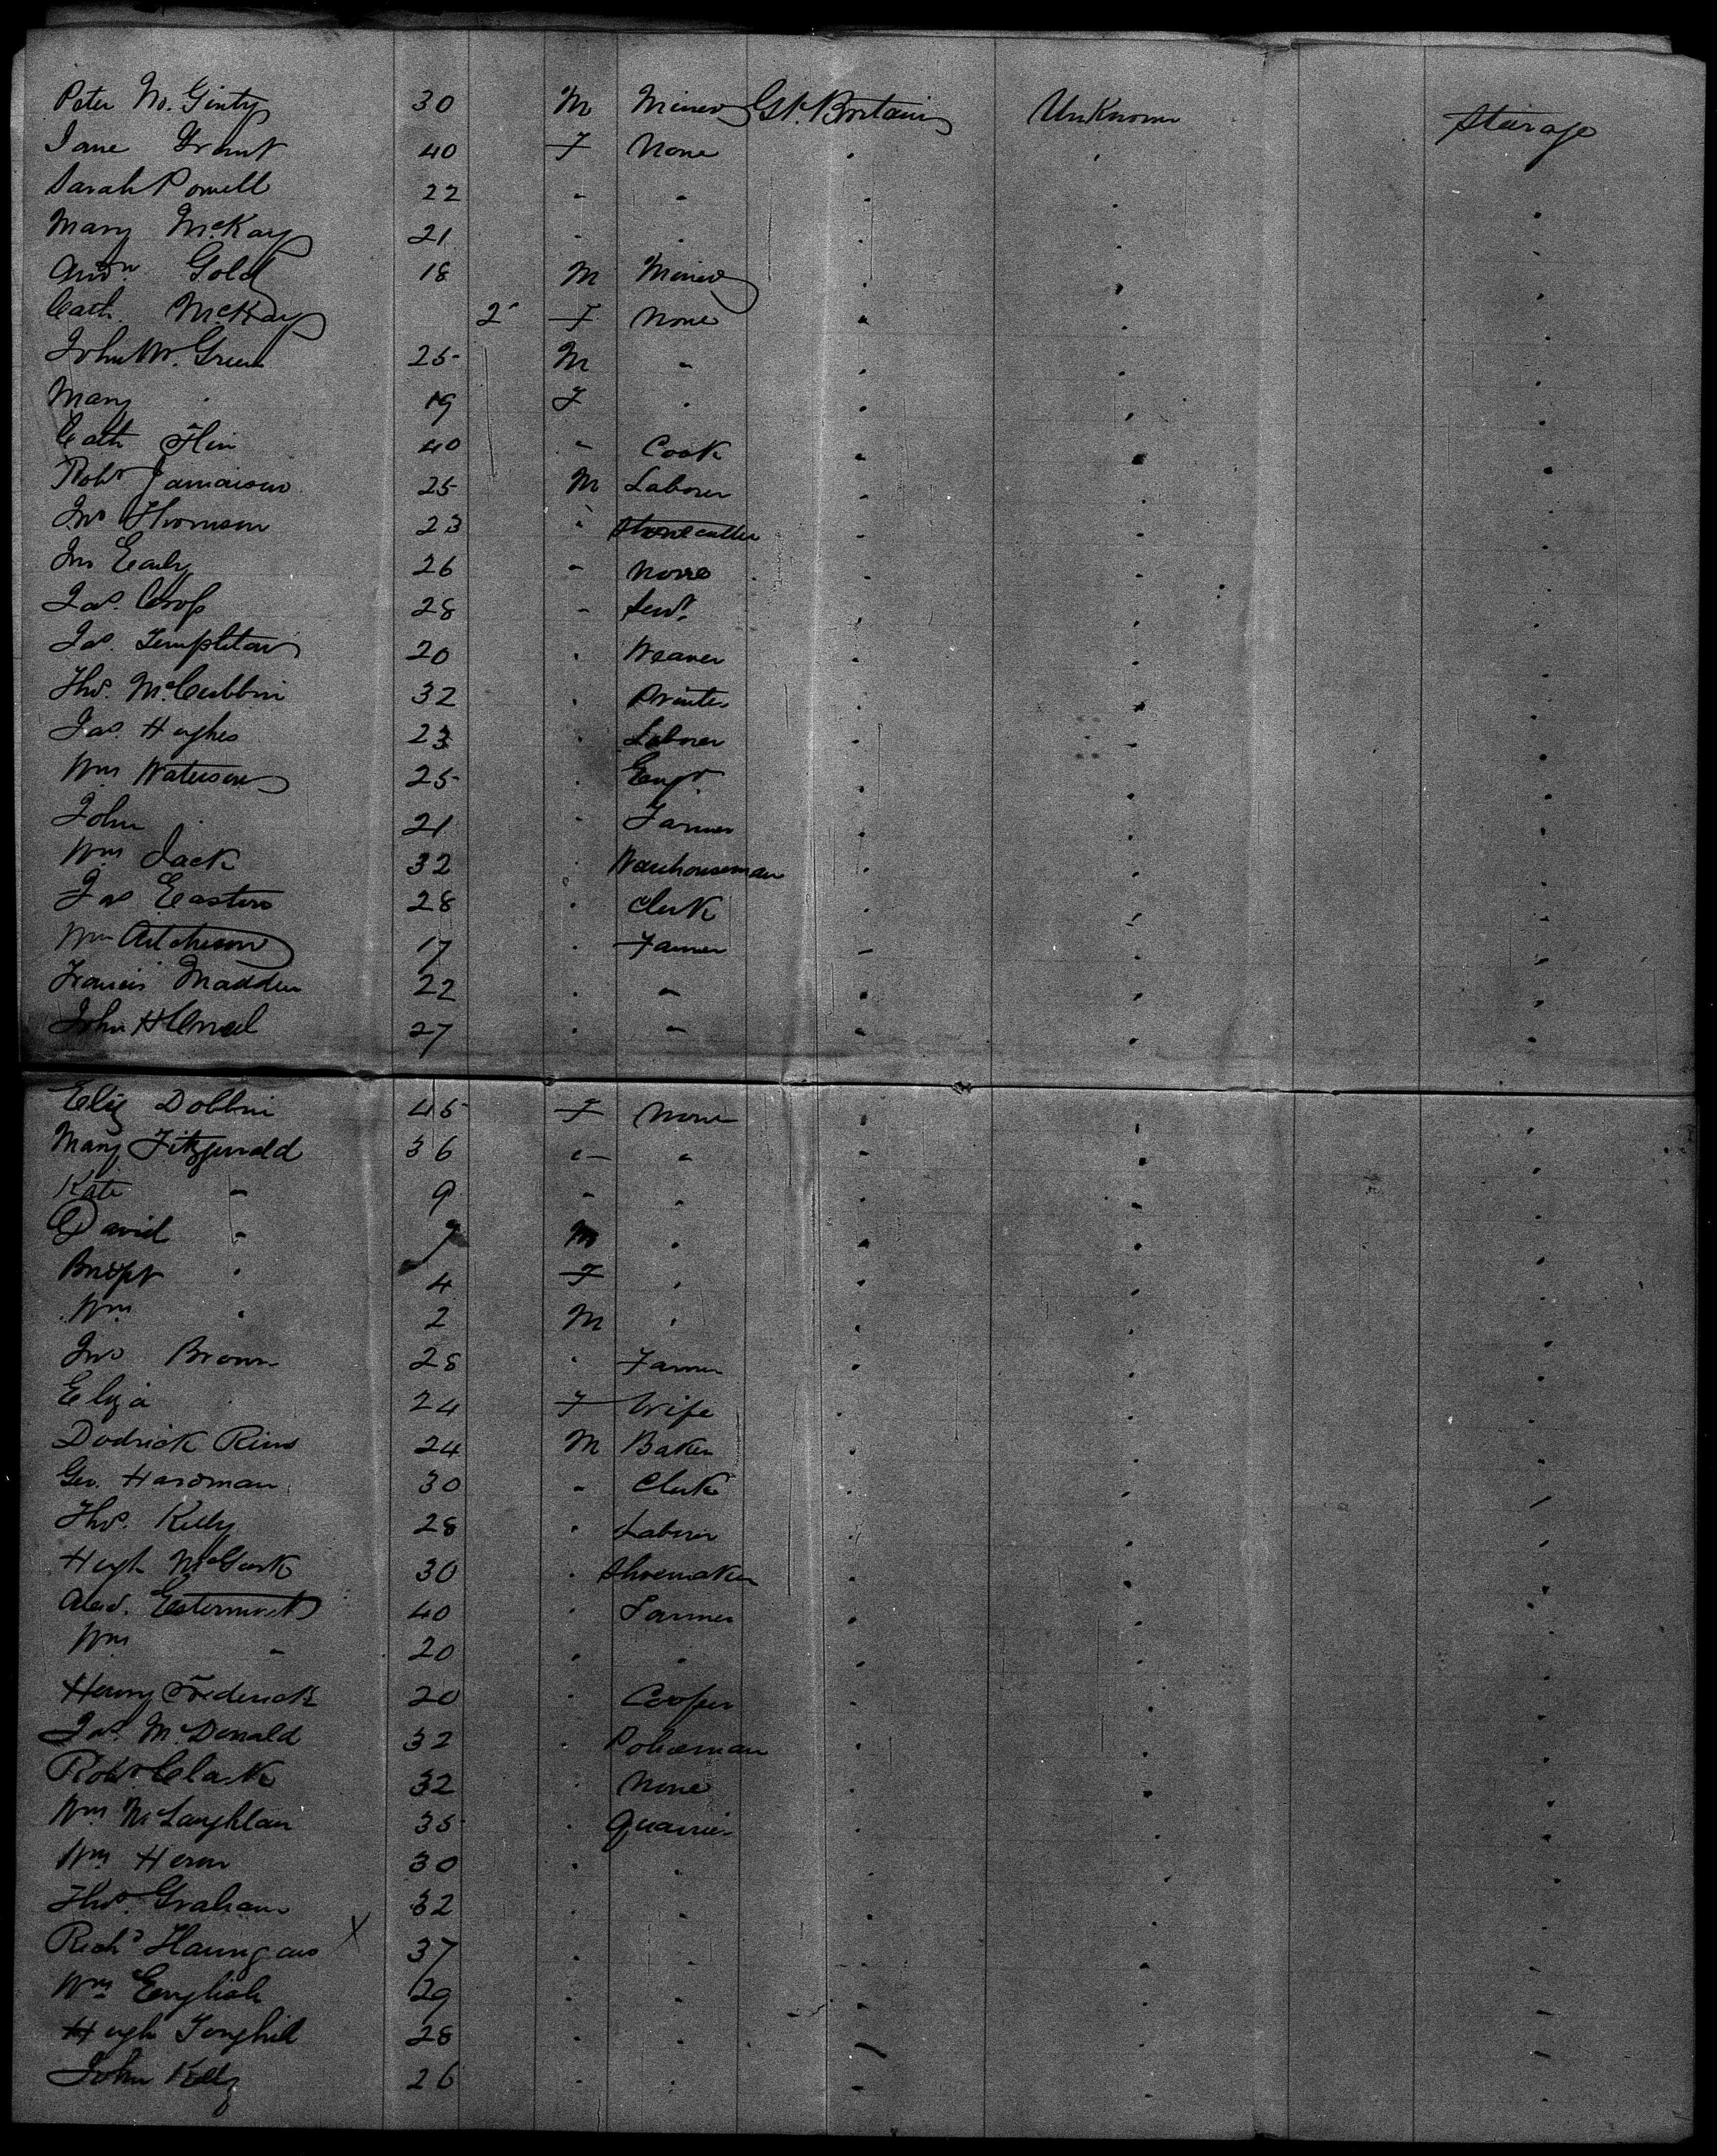 Peter Mc. Ginty 30 M Miner Gt. Britain Unknown Steerage
Jane Grant 40 F None
Sarah Powell 22 " "
Mary McKay 21 " "
Andw. Gold 18 M Miner
Cath. McKay 2 F None
John Mc. Green 25 M "
Mary " 19 F "
Cath 40 " Cook
Robt Jamaison 25 M Laborer
Jno Thomson 23 " Stonecutter
Jno Early 26 " None
Jas. 28 " Servt.
Jas. Templeton 20 " Weaver
Thos. McCubbin 32 " Printer
Jas. Hughes 23 " Laborer
Wm Waterson 25 " Engr.
John " 21 " Farmer
Wm Jack 32 " Warehouseman
Jas Easton 28 " Clerk
Wm Aitcheson 17 " Farmer
Francis Madden 22 " "
John 27 " "
Eliz Dobbin 45 F None
Mary Fitzgerald 36 " "
Kate " 9 " "
David " 7 M "
Bridgt " 4 F "
Wm " 2 M "
Jno Brown 28 " Farmer
Eliza " 24 F Wife
Dodrick 24 M Baker
Geo. Hardman 30 " Clerk
Thos. Kelly 28 " Laborer
Hugh McGurk 30 " Shoemaker
Alexd. 40 " Farmer
Wm " 20 " "
Henry Frederick 20 " Cooper
Jas. McDonald 32 " Policeman
Robt Clark 32 " None
Wm McLaughlan 35 " Quarrier
Wm Heron 30 " "
Thos. Graham 32 " "
Richd X 37 " "
Wm English 29 " "
Hugh 28 " "
John Kelly 26 " "